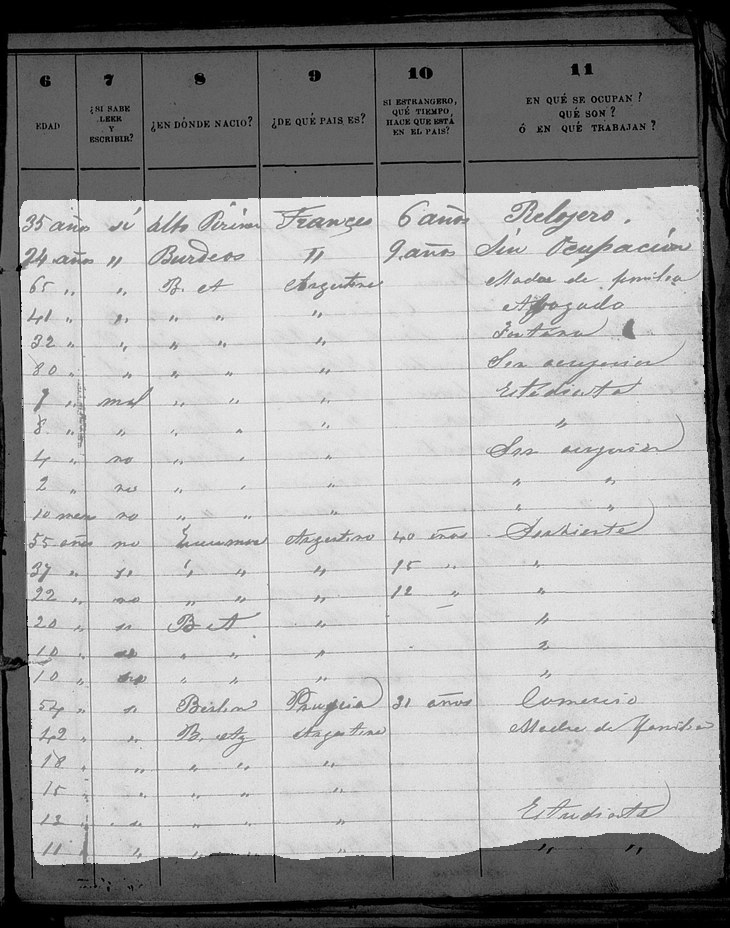 6 7 8 9 10 11
EDAD ¿SI SABE LEER Y ESCRIBIR? ¿EN DÓNDE NACIO? ¿DE QUÉ PAIS ES? SI ESTRANGERO, QUÉ TIEMPO HACE QUE ESTÁ EN EL PAIS? EN QUÉ SE OCUPAN? QUÉ SON? Ó EN QUÉ TRABAJAN?
35 años sí Alto Pirine Françes 6 años Relojero.
24 años " Burdeos " 9 años Sin Ocupación
65 " " B. A Argentina Madre de familia
41 " " " " " Abogado
32 " " " " "
30 " " " " " Sin ocupacion
9 " mal " " " Estudiante
8 " " " " " "
4 " no " " " Sin ocupacion
2 " no " " " " "
10 mes no " " " " "
55 años no Argentino 40 años Sirviente
37 " si " " " 15 " "
22 " no " " " 12 " "
20 " si B A " "
10 " " " " "
10 " no " " " "
54 " si Berlin Prusia 31 años Comercio
42 " " B. A Argentina Madre de familia
18 " " " " "
15 " " " " "
12 " si " " " Estudiante
11 " " " " " " "